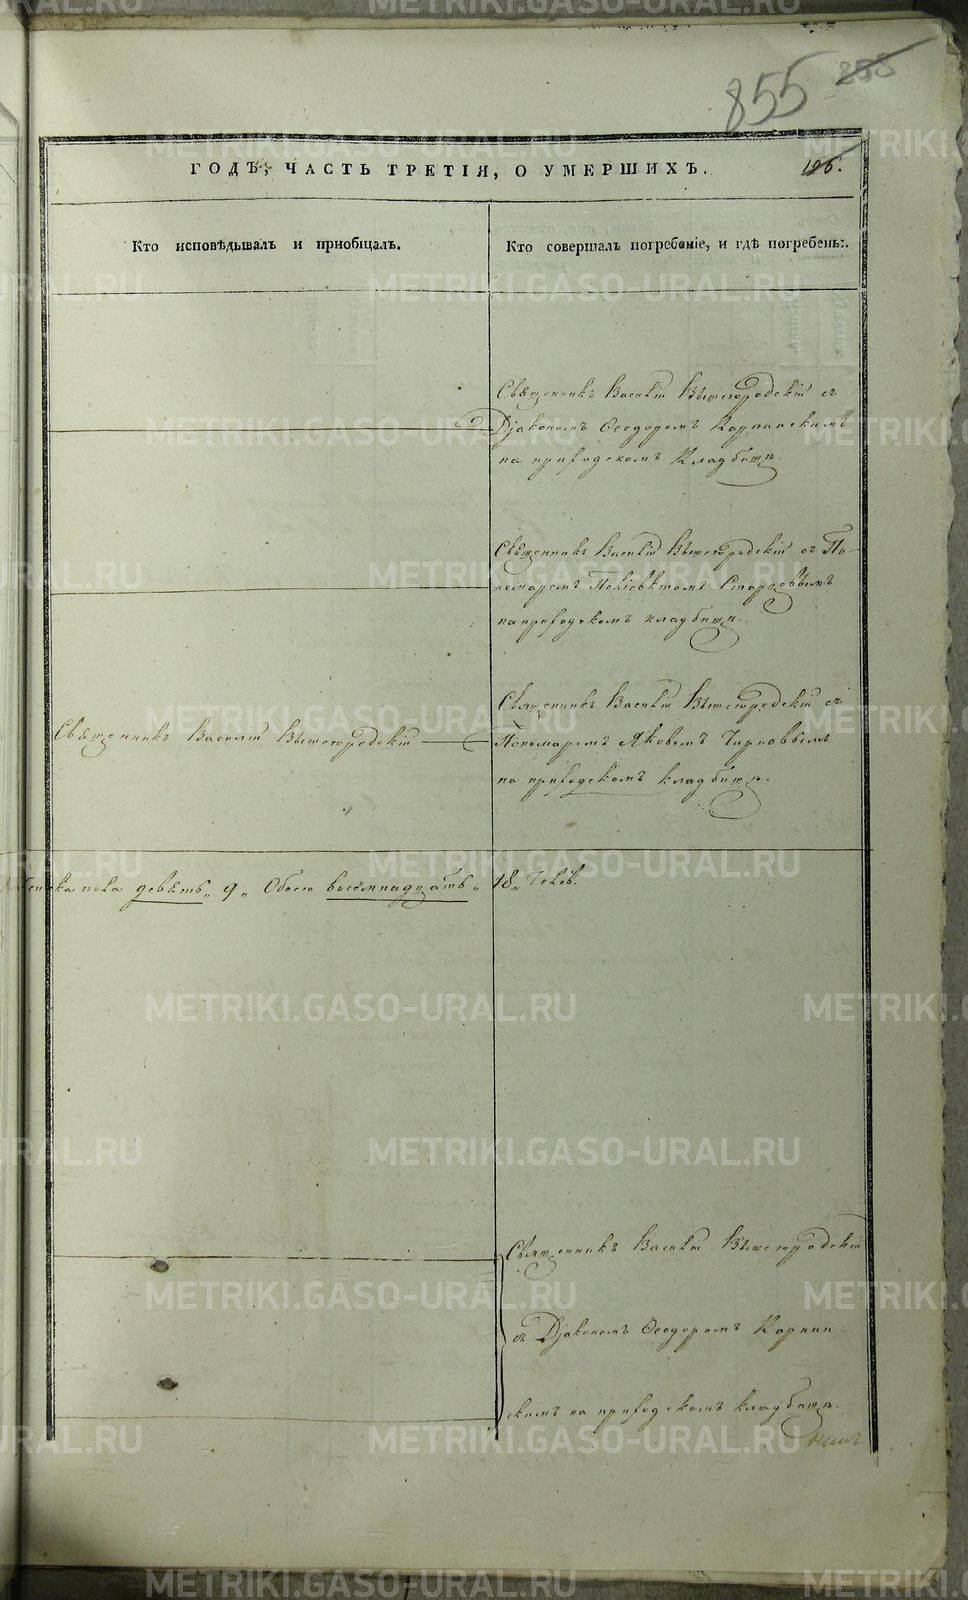 855 255
ГОДЪ, ЧАСТЬ ТРЕТІЯ, О УМЕРШИХЪ. 126.
Кто исповѣдывалъ и приобщалъ.
Кто совершалъ погребеніе, и гдѣ погребены.
Священникъ Василій Вышегородскій съ
Діакономъ Ѳеодоромъ Карпинскимъ
на приходскомъ Кладбищѣ.
Священникъ Василій Вышегородскій съ По-
номаремъ Старцовымъ
на приходскомъ кладбищѣ.
Священникъ Василій Вышегородскій
Священникъ Василій Вышегородскій съ
Пономаремъ Яковомъ
на приходскомъ кладбищѣ.
пола девять „9„ Обоего восемнадцать „18„ Челов.
Священникъ Василій Вышегородскій
съ Діакономъ Ѳеодоромъ Карпин
скимъ на приходскомъ кладбищѣ.
METRIKI.GASO-URAL.RU